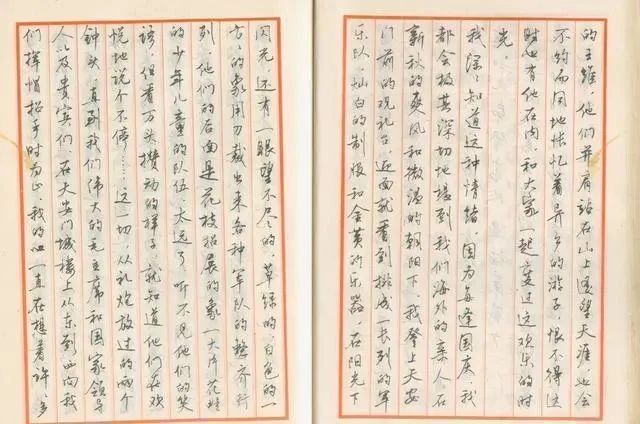 的王维，他们并肩站在山上遥望天涯，也会
不约而同地怀忆着异乡的游子，恨不得这
时也有他在内，和大家一起度过这欢乐的时
光。
我深深知道这种情绪，因为每逢国庆，我
都会极其深切地想到我们海外的亲人。在
新秋的爽风和微温的朝阳下，我登上天安
门前的观礼台，迎面就看到排成一长列的军
乐队，灿白的制服和金黄的乐器，在阳光下
闪光，还有一眼望不尽的，草绿的，白色的一
方方的象用刀裁出来各种军队的整齐行
列，他们的后面是花枝招展的象一大片花畦
的少年儿童的队伍，太远了，听不见他们的笑
语，但看万头攒动的样子，就知道他们在欢
悦地说个不停……这一切，从礼炮放过的两个
钟头，直到我们伟大的毛主席和国家领导
人以及贵宾们，在天安门城楼上从东到西向我
们挥帽招手时为止，我的心一直在想着许多